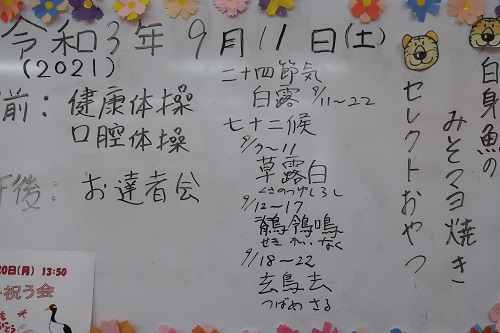 令和3年9月11日(土)
(2021)
前：健康体操
口腔体操
午後：お達者会
二十四節気
白露 9/11〜22
七十二候
9/7〜11
草露白
くさのつゆしろし
9/12〜17
鶺鴒鳴
せきれいなく
9/18〜22
玄鳥去
つばめさる
白身魚の
みそマヨ焼き
セレクトおやつ
20日(月) 13:50
祝う会